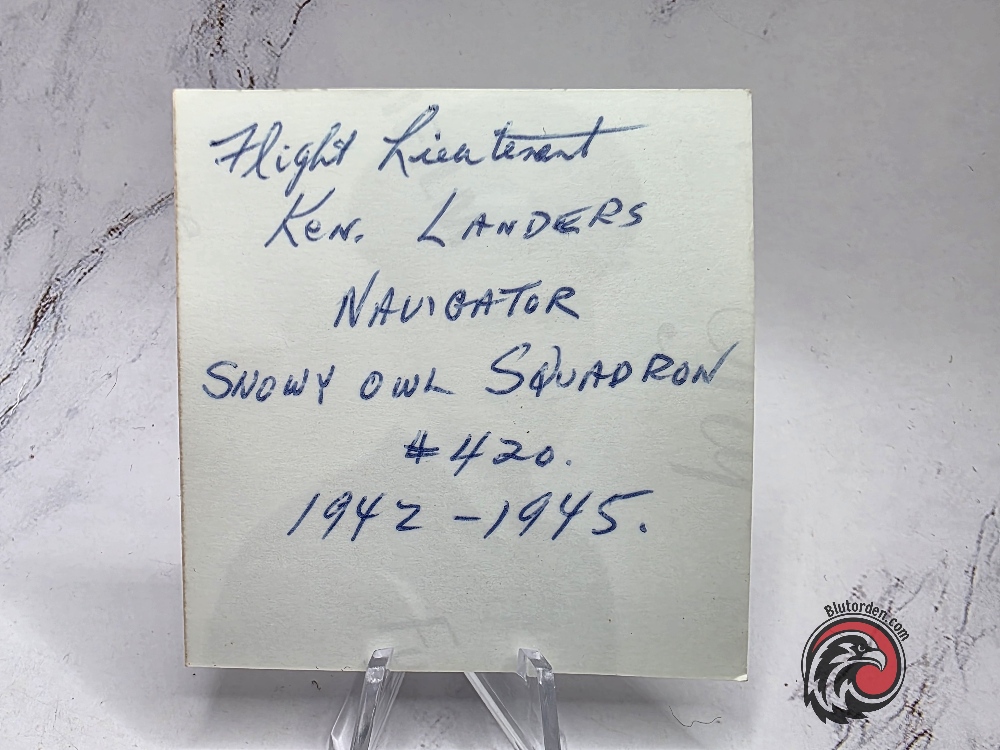 Flight Lieutenant
Ken. LANDERS
NAVIGATOR
SNOWY OWL SQUADRON
#420.
1942-1945.
Blutorden.com